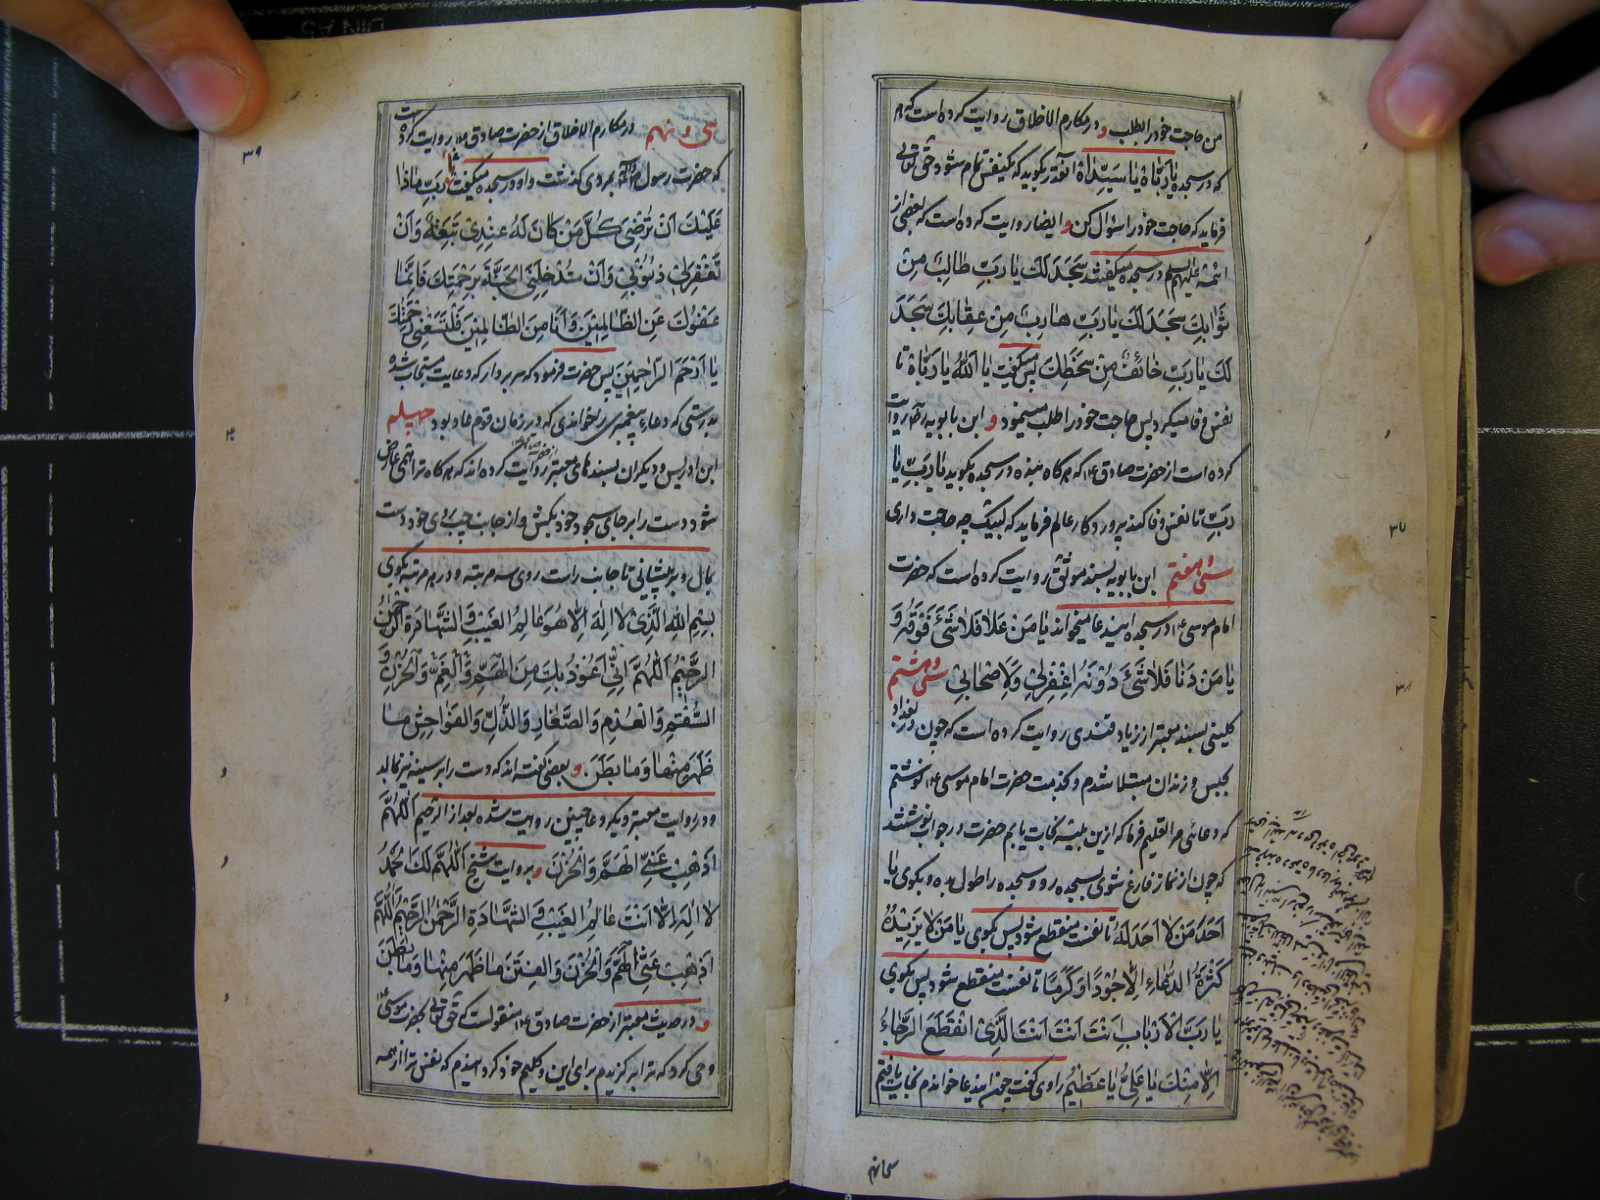 من حاجت خود را طلب و در مکارم الاخلاق روایت کرده است که هر
که در سجده یا رَبّاهُ یا سَیِّداهُ آنقدر بگوید که یکنفس تمام شود حق تعالی
فرماید که حاجت خود را سؤال کن و ایضا روایت کرده است که بعضی از
ائمه علیهم السلم در سجده میگفتند سَجَدَ لَكَ یا رَبِّ طالِبٌ مِنْ
ثَوابِكَ سَجَدَ لَكَ یا رَبِّ هارِبٌ مِنْ عِقابِكَ سَجَدَ
لَكَ یا رَبِّ خائِفٌ مِنْ سَخَطِكَ پس میگفت یا اَللّٰهُ یا رَبّاهُ تا
نفس وفا میکرد پس حاجت خود را طلب مینمود و ابن بابویه ره روایت
کرده است از حضرت صادق ع که هرگاه بنده در سجده بگوید یا رَبِّ یا
رَبِّ تا نفس وفا کند پروردگار عالم فرماید که لبیک چه حاجت داری
سی و هفتم ابن بابویه بسند موثق روایت کرده است که حضرت
امام موسی ع در سجده این دعا میخواند یا مَنْ عَلا فَلا شَیْءَ فَوْقَهُ وَ
یا مَنْ دَنا فَلا شَیْءَ دُونَهُ اِغْفِرْلِی وَلِاَصْحابِی سی و هشتم
کلینی بسند معتبر از زیاد قندی روایت کرده است که چون در بغداد
بحبس و زندان مبتلا شدم و بخدمت حضرت امام موسی ع نوشتم
که دعائی مرا تعلیم فرما که ازین بلیه نجات یابم حضرت در جواب نوشتند
که چون از نماز فارغ شوی بسجده رو و سجده را طول بده و بگوی یا
اَحَدَ مَنْ لا اَحَدَ لَهُ تا نفست منقطع شود پس بگوی یا مَنْ لا یَزِیدُهُ
کَثْرَةُ الدُّعاءِ اِلاّ جُودًا وَکَرَمًا تا نفست منقطع شود پس بگوی
یا رَبَّ الْاَرْبابِ اَنْتَ اَنْتَ اَنْتَ الَّذِی انْقَطَعَ الرَّجاءُ
اِلاّ مِنْكَ یا عَلِیُّ یا عَظِیمُ راوی گفت چون این دعا خواندم نجات یافتم
٣٧
٣٨
سی و نهم در مکارم الاخلاق از حضرت صادق ع روایت کرده است
که حضرت رسول بمردی گذشت و او در سجده میگفت یا رَبِّ ماذا
عَلَیْكَ اَنْ تُرْضِیَ کُلَّ مَنْ کانَ لَهُ عِنْدِی تَبِعَةٌ وَاَنْ
تَغْفِرَلِی ذُنُوبِی وَاَنْ تُدْخِلَنِی الْجَنَّةَ بِرَحْمَتِكَ فَاِنَّما
عَفْوُكَ عَنِ الظّالِمِینَ وَاَنَا مِنَ الظّالِمِینَ فَلْتَسَعْنِی رَحْمَتُكَ
یا اَرْحَمَ الرّاحِمِینَ پس حضرت فرمود که سر بردار که دعایت مستجاب شد
بدرستی که دعاء پیغمبری را خواندی که در زمان قوم عاد بود چهلم
ابن ادریس و دیگران بسندهای معتبر روایت کرده اند که هرگاه ترا همی عارض
شود دست را بر جای سجود خود بکش و از جانب چپ روی خود دست
بمال و بر پیشانی تا جانب راست روی سه مرتبه و در هر مرتبه بگوی
بِسْمِ اللهِ الَّذِی لا اِلٰهَ اِلاّ هُوَ عالِمُ الْغَیْبِ وَالشَّهادَةِ الرَّحْمٰنُ
الرَّحِیمُ اَللّٰهُمَّ اِنِّی اَعُوذُ بِكَ مِنَ الْهَمِّ وَالْغَمِّ وَالْحُزْنِ وَ
السُّقْمِ وَالْعُدْمِ وَالصَّغارِ وَالذُّلِّ وَالْفَواحِشِ ما
ظَهَرَ مِنْها وَما بَطَنَ و بعضی گفته اند که دست را بر سینه نیز بمالد
و در روایت معتبر دیگر دعا چنین روایت شده بعد از الرحیم اَللّٰهُمَّ
اَذْهِبْ عَنِّی الْهَمَّ وَالْحُزْنَ و بروایت شیخ اَللّٰهُمَّ لَكَ الْحَمْدُ
لا اِلٰهَ اِلاّ اَنْتَ عالِمُ الْغَیْبِ وَالشَّهادَةِ الرَّحْمٰنُ الرَّحِیمُ اَللّٰهُمَّ
اَذْهِبْ عَنِّی الْهَمَّ وَالْحُزْنَ وَالْفِتَنَ ما ظَهَرَ مِنْها وَما بَطَنَ
و در حدیث معتبر از حضرت صادق ع منقولست که حق تعالی بحضرت موسی ع
وحی کرد که ترا برگزیدم برای این و کلیم خود گردانیدم که نفس ترا از همه
٣٩